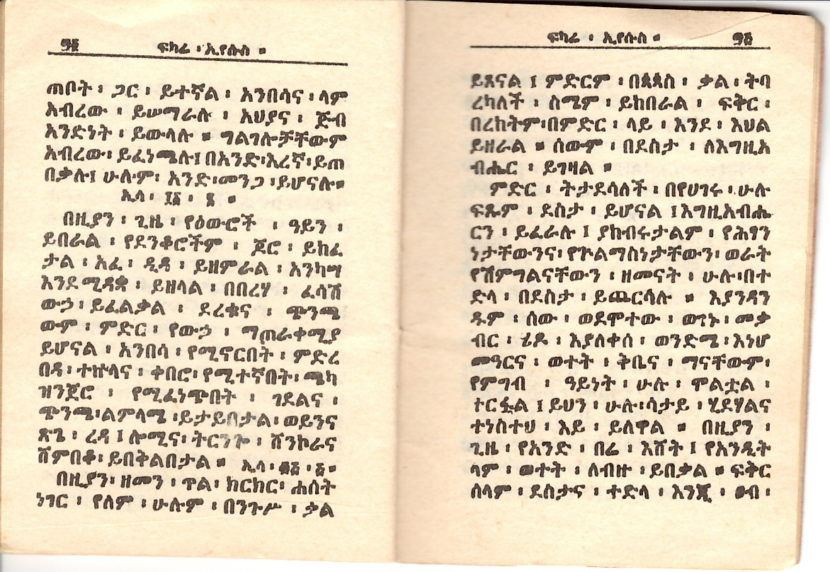 ፍካሬ ፡ ኢየሱስ ።
ጠቦት ፡ ጋር ፡ ይተኛል ፡ አንበሳና ፡ ላም
አብረው ፡ ይሠማራሉ ፡ አህያና ፡ ጅብ
አንድነት ፡ ይውላሉ ። ግልገሎቻቸውም
አብረው ፡ ይፈነጫሉ፤ በአንድ፡እረኛ፡ይጠ
በቃሉ፤ ሁሉም ፡ አንድ፡መንጋ ፡ይሆናሉ።
ኢሳ ፡
በዚያን ፡ ጊዜ ፡ የዕውሮች ፡ ዓይን ፡
ይበራል ፡ የደንቆሮችም ፡ ጆሮ ፡ ይከፈ
ታል ፡ አፈ ፡ ዲዳ ፡ ይዘምራል ፡ አንካሣ
እንደሚዳቋ ፡ ይዘላል ፡ በበረሃ ፡ ፈሳሽ
ውኃ ፡ ይፈልቃል ፡ ደረቁና ፡ ጭንጫ
ውም ፡ ምድር ፡ የውኃ ፡ ማጠራቀሚያ
ይሆናል ፡ አንበሳ ፡ የሚኖርበት ፡ ምድረ
በዳ ፡ ተኵላና ፡ ቀበሮ፡ የሚተኛበት፡ ጫካ
ዝንጀሮ ፡ የሚፈነጭበት ፡ ገደልና ፡
ጭንጫ፡ልምላሜ ፡ይታይበታል ፡ወይንና
ጽጌ ፡ ረዳ ፤ ሎሚና፡ ትርንጐ ፡ ሸንኮራና
ሸምበቆ ፡ ይበቅልበታል ። ኢሳ ፡
በዚያን፡ ዘመን ፡ ጥል ፡ ክርክር፡ ሐሰት
ነገር ፡ የለም ፡ ሁሉም ፡ በንጉሥ ፡ ቃል
ፍካሬ ፡ ኢየሱስ ።
ይጸናል ፤ ምድርም ፡ በጳጳስ ፡ ቃል ፡ ትባ
ረካለች ፡ ስሜም ፡ ይከበራል ፡ ፍቅር ፡
በረከትም፡በምድር ፡ ላይ ፡ እንደ ፡ እህል
ይዘራል ። ሰውም ፡ በደስታ ፡ ለእግዚአ
ብሔር ፡ ይገዛል ።
ምድር ፡ ትታደሳለች ፡ በየሀገሩ ፡ ሁሉ
ፍጹም ፡ ደስታ ፡ ይሆናል ፤ እግዚአብሔ
ርን ፡ ይፈራሉ ፤ ያከብሩታልም ፡ የሕፃን
ነታቸውንና፡ የጐልማስነታቸውን፡ ወራት
የሽምግልናቸውን ፡ ዘመናት ፡ ሁሉ፡በተ
ድላ ፡ በደስታ ፡ ይጨርሳሉ ። እያንዳን
ዱም ፡ ሰው ፡ ወደሞተው ፡ ወገኑ ፡ መቃ
ብር ፡ ሄዶ ፡ እያለቀሰ ፡ ወንድሜ ፡ እነሆ
መዓርና ፡ ወተት ፡ ቅቤና ፡ ማናቸውም፡
የምግብ ፡ ዓይነት ፡ ሁሉ ፡ ሞልቷል ፡
ተርፏል ፤ ይህን ፡ ሁሉ፡ሳታይ ፡ ሂደሃልና
ተነስተህ ፡ እይ ፡ ይለዋል ። በዚያን ፡
ጊዜ ፡ የአንድ ፡ በሬ ፡ እሸት ፤ የአንዲት
ላም ፡ ወተት ፡ ለብዙ ፡ ይበቃል ። ፍቅር
ሰላም ፡ ደስታና ፡ ተድላ ፡ እንጂ ፡ ፀብ ፡